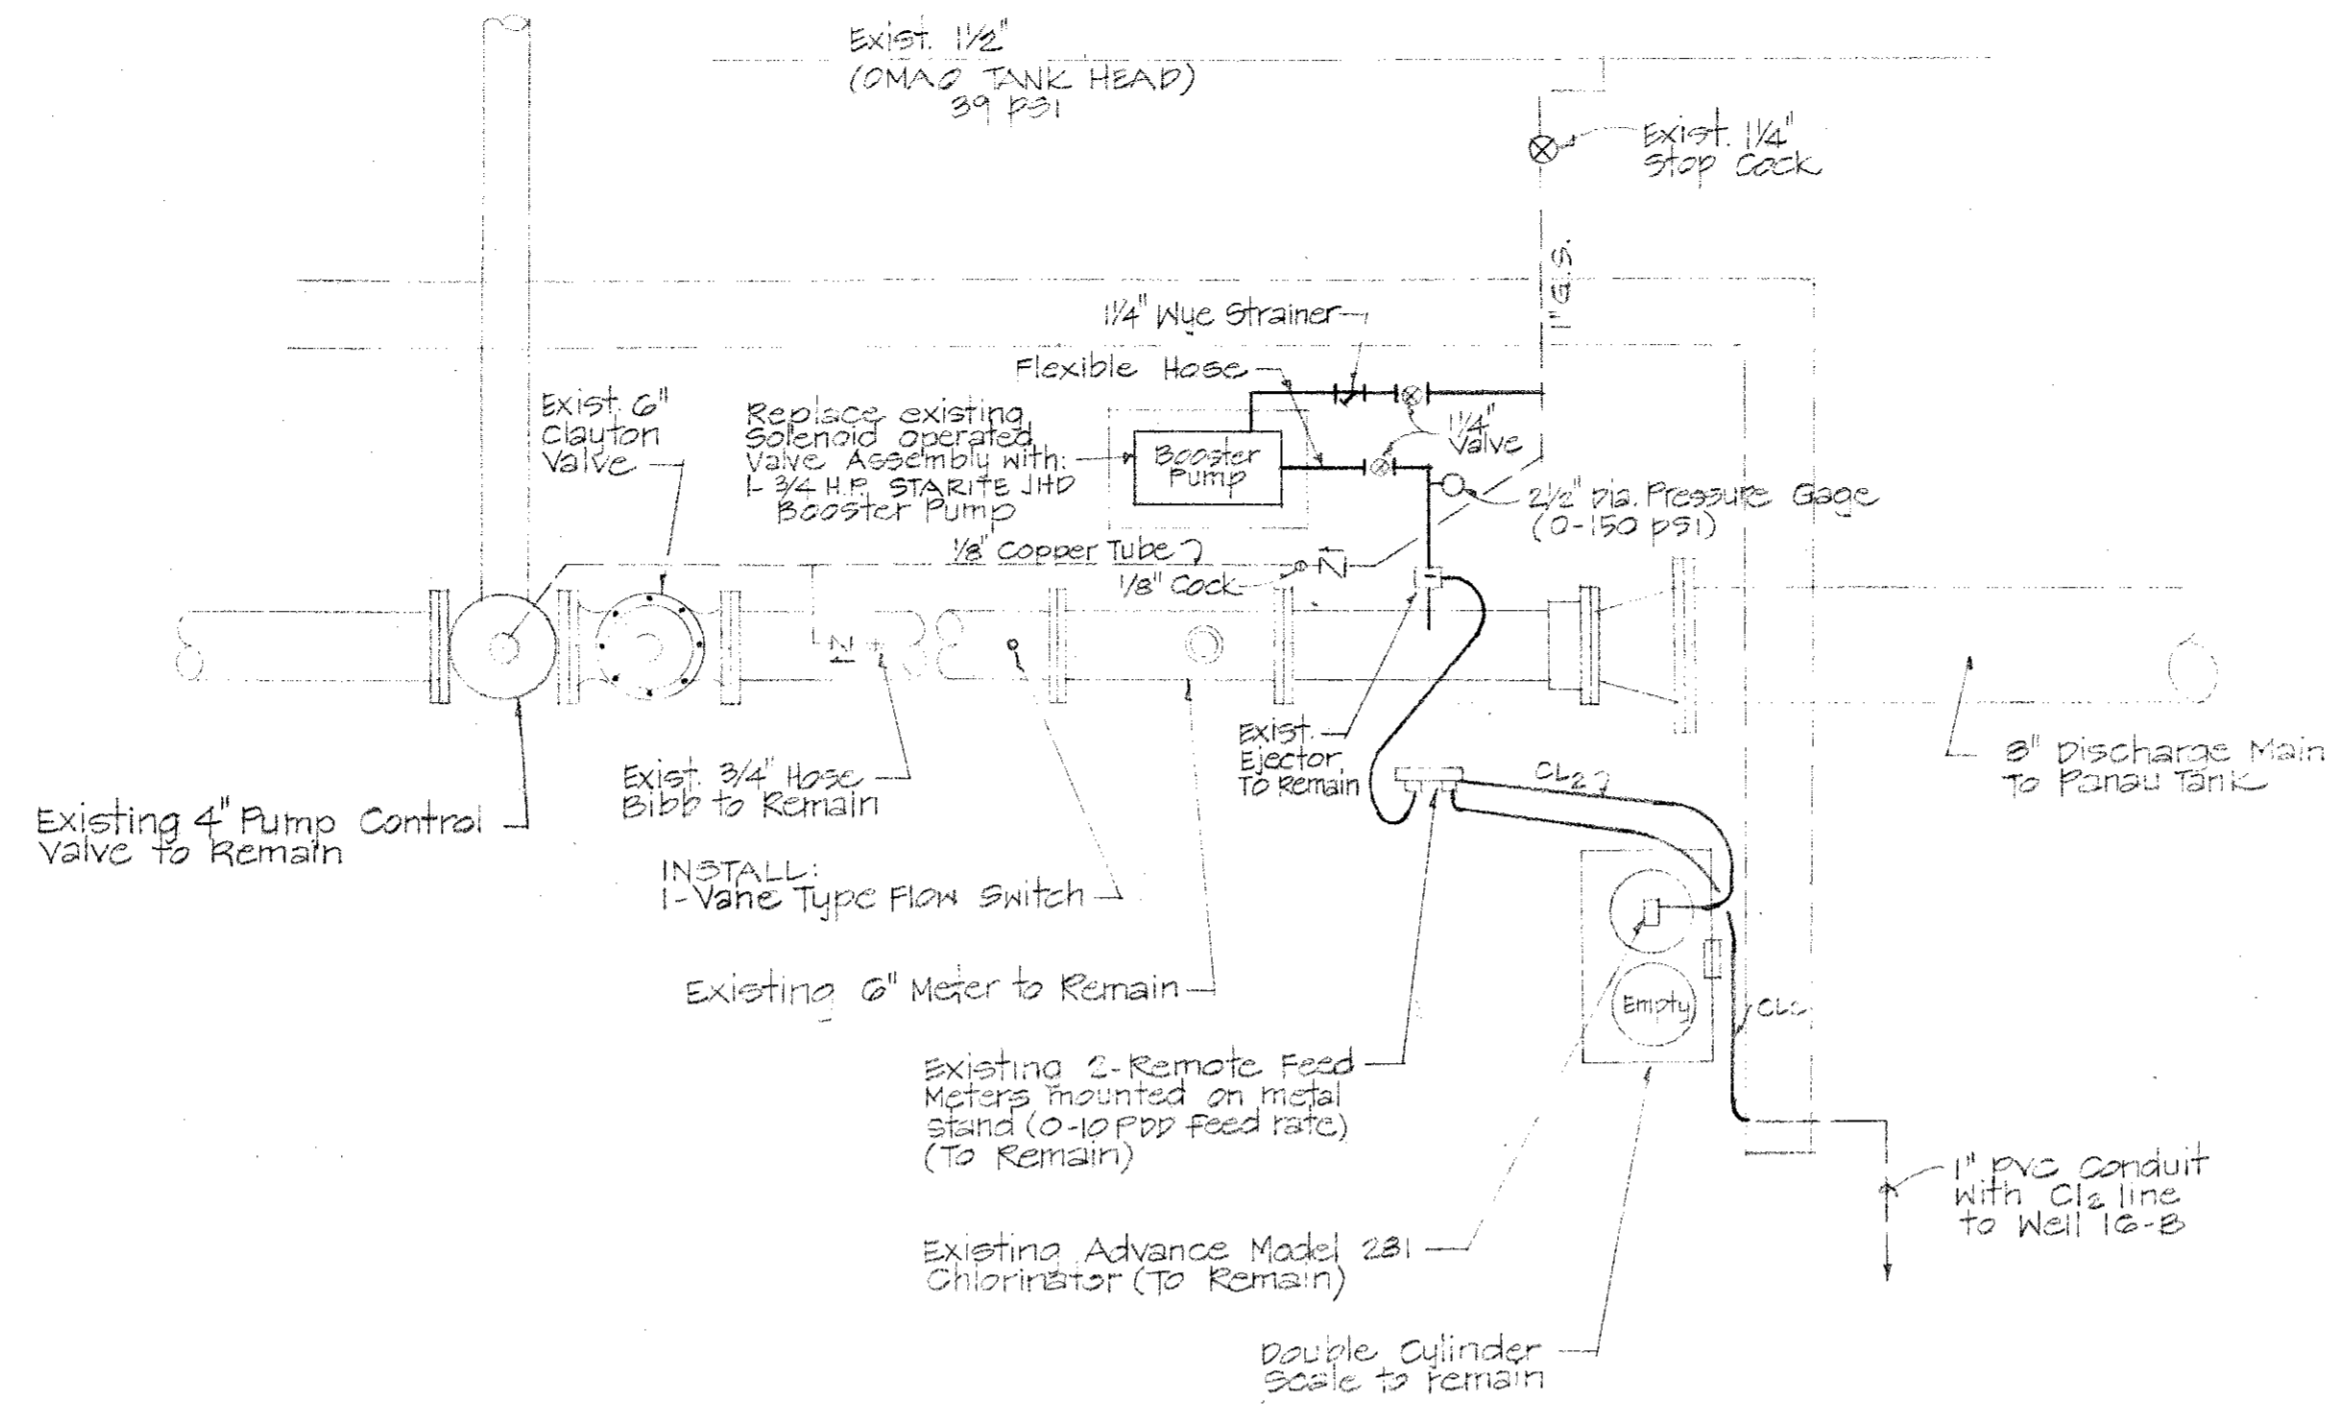 Exist. 1½"
(OMAO TANK HEAD)
39 PSI
Exist. 1¼"
Stop Cock
1" G.S.
1¼" Wye Strainer
Flexible Hose
Exist. 6"
Clayton
Valve
Replace existing
Solenoid operated
Valve Assembly with:
1- 3/4 H.P. STARITE JHD
Booster Pump
Booster
Pump
1¼"
Valve
2½" Dia. Pressure Gage
(0-150 PSI)
1/8" Copper Tube
1/8" Cock
Exist.
Ejector
To Remain
8" Discharge Main
To Panau Tank
Exist. 3/4" Hose
Bibb to Remain
CL2
Existing 4" Pump Control
Valve to Remain
INSTALL:
1-Vane Type Flow Switch
Existing 6" Meter to Remain
Empty
Existing 2-Remote Feed
Meters mounted on metal
stand (0-10 PDD feed rate)
(To Remain)
1" PVC Conduit
With Cl2 line
to Well 16-B
Existing Advance Model 281
Chlorinator (To Remain)
Double Cylinder
Scale to remain